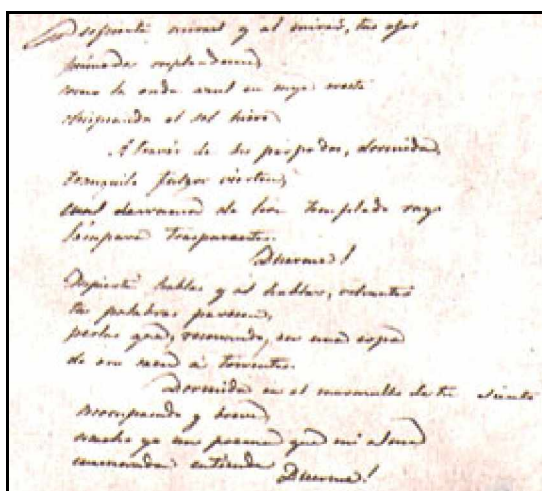 Despierta miras y al mirar, tus ojos
húmedos resplandecen
como la onda azul en cuya cresta
chispeando el sol hiere
A través de tus párpados, dormida,
tranquilo fulgor viertes,
cual derraman de luz templado rayo
lámpara trasparente.
Duerme!
Despierta hablas y al hablar, vibrantes
tus palabras parecen,
perlas que, en una copa
de oro a torrentes.
Dormida en el murmullo de tu aliento
acompasado y tenue,
escucho yo un poema que mi alma
enamorada entiende Duerme!